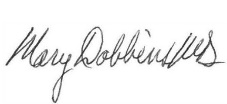 Mary Dobbins MS